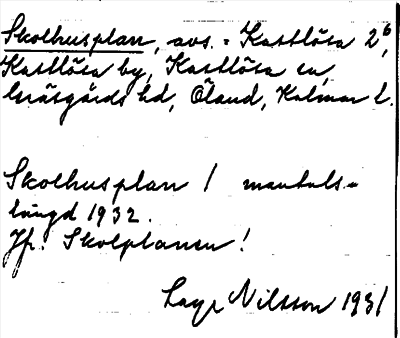 Skolhusplan, avs. = Kastlösa 2⁶,
Kastlösa by, Kastlösa sn,
Gräsgårds hd, Öland, Kalmar l.
Skolhusplan / mantals-
längd 1932.
Jfr. Skolplanen!
Nilsson 1931